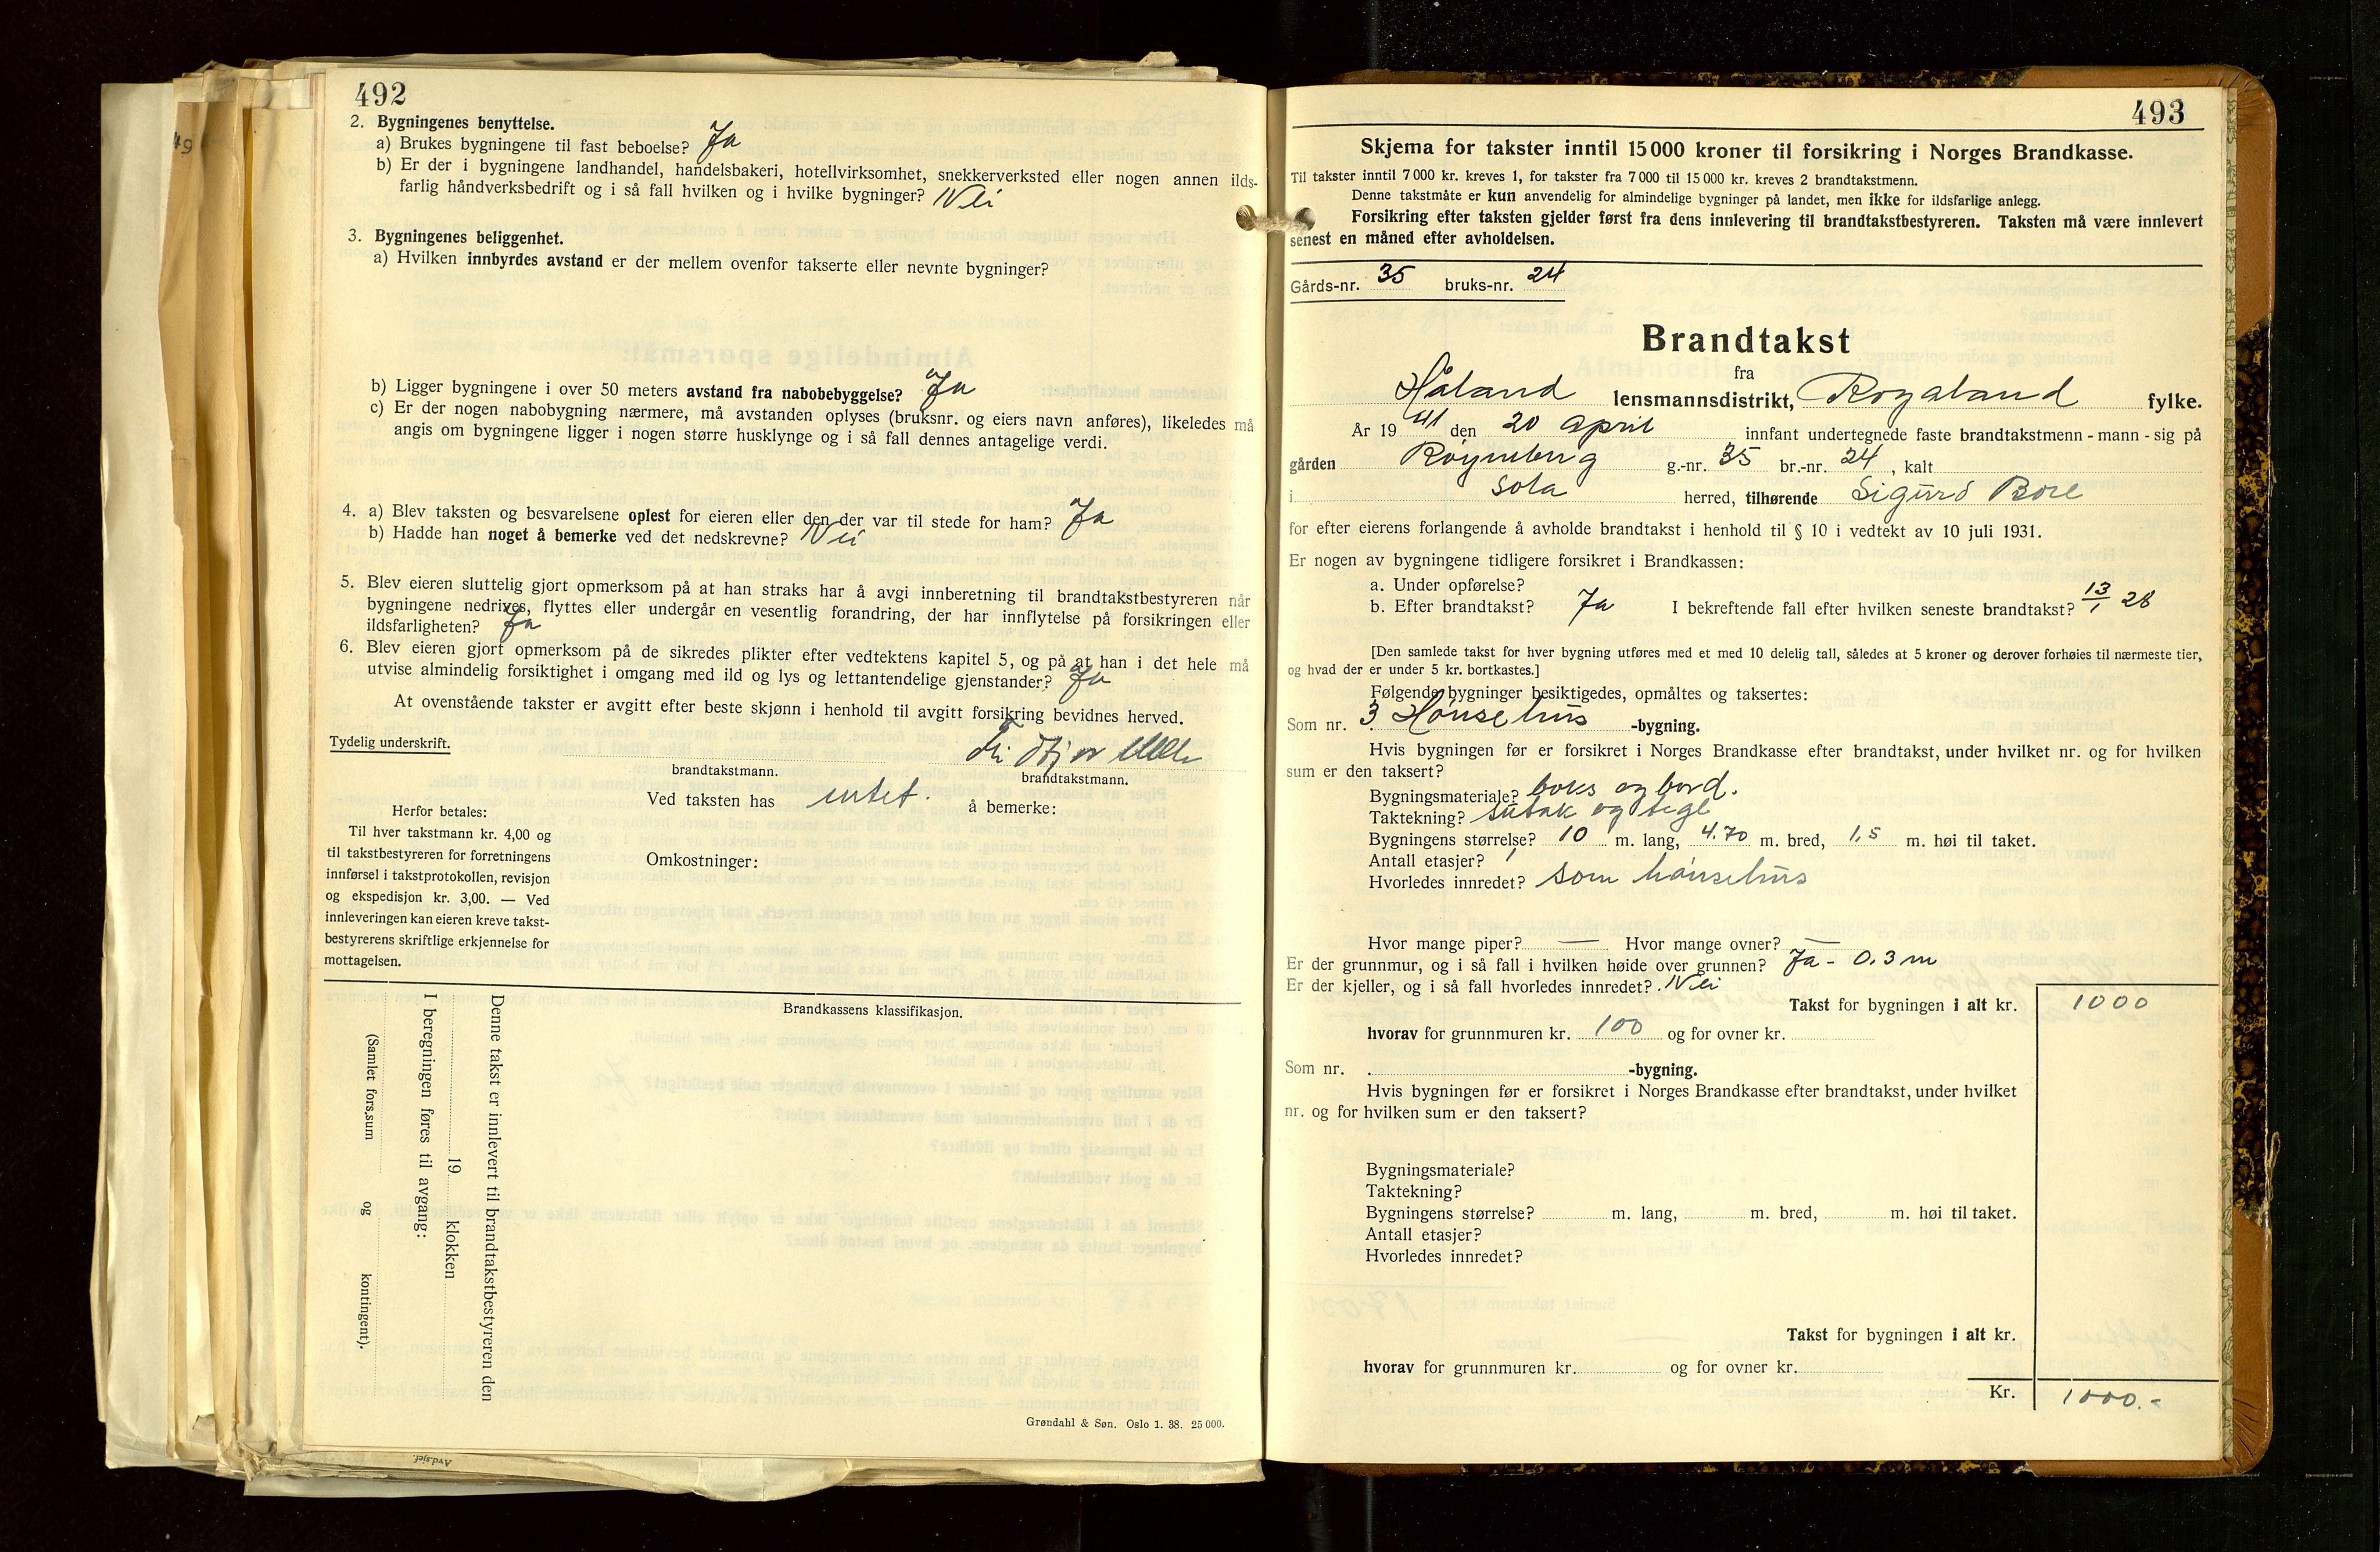 492
2. Bygningenes benyttelse.
a) Brukes bygningene til fast beboelse? Ja
b) Er der i bygningene landhandel, handelsbakeri, hotellvirksomhet, snekkerverksted eller nogen annen ilds-
farlig håndverksbedrift og i så fall hvilken og i hvilke bygninger? Nei
3. Bygningenes beliggenhet.
a) Hvilken innbyrdes avstand er der mellem ovenfor takserte eller nevnte bygninger?
b) Ligger bygningene i over 50 meters avstand fra nabobebyggelse? Ja
c) Er der nogen nabobygning nærmere, må avstanden oplyses (bruksnr. og eiers navn anføres), likeledes må
angis om bygningene ligger i nogen større husklynge og i så fall dennes antagelige verdi.
4. a) Blev taksten og besvarelsene oplest for eieren eller den der var til stede for ham? Ja
b) Hadde han noget å bemerke ved det nedskrevne? Nei
5. Blev eieren sluttelig gjort opmerksom på at han straks har å avgi innberetning til brandtakstbestyreren når
bygningene nedrives, flyttes eller undergår en vesentlig forandring, der har innflytelse på forsikringen eller
ildsfarligheten? Ja
6. Blev eieren gjort opmerksom på de sikredes plikter efter vedtektens kapitel 5, og på at han i det hele må
utvise almindelig forsiktighet i omgang med ild og lys og lettantendelige gjenstander? Ja
At ovenstående takster er avgitt efter beste skjønn i henhold til avgitt forsikring bevidnes herved.
Tydelig underskrift.
brandtakstmann. brandtakstmann.
Ved taksten has intet. å bemerke:
Herfor betales:
Til hver takstmann kr. 4,00 og
til takstbestyreren for forretningens
innførsel i takstprotokollen, revisjon
og ekspedisjon kr. 3,00. — Ved
innleveringen kan eieren kreve takst-
bestyrerens skriftlige erkjennelse for
mottagelsen.
Omkostninger:
Brandkassens klassifikasjon.
Denne takst er innlevert til brandtakstbestyreren den
19 klokken
I beregningen føres til avgang:
(Samlet fors.sum og kontingent).
Grøndahl & Søn. Oslo 1. 38. 25 000.
Avd.sjef.
49
493
Skjema for takster inntil 15 000 kroner til forsikring i Norges Brandkasse.
Til takster inntil 7 000 kr. kreves 1, for takster fra 7 000 til 15 000 kr. kreves 2 brandtakstmenn.
Denne takstmåte er kun anvendelig for almindelige bygninger på landet, men ikke for ildsfarlige anlegg.
Forsikring efter taksten gjelder først fra dens innlevering til brandtakstbestyreren. Taksten må være innlevert
senest en måned efter avholdelsen.
Gårds-nr. 35 bruks-nr. 24
Brandtakst
fra
Håland lensmannsdistrikt, Rogaland fylke.
År 19 41 den 20 april innfant undertegnede faste brandtakstmenn - mann - sig på
gården Røyneberg g.-nr. 35 br.-nr. 24, kalt
i Sola herred, tilhørende Sigurd Bore
for efter eierens forlangende å avholde brandtakst i henhold til § 10 i vedtekt av 10 juli 1931.
Er nogen av bygningene tidligere forsikret i Brandkassen:
a. Under opførelse?
b. Efter brandtakst? Ja I bekreftende fall efter hvilken seneste brandtakst? 13/1 28
[Den samlede takst for hver bygning utføres med et med 10 delelig tall, således at 5 kroner og derover forhøies til nærmeste tier,
og hvad der er under 5 kr. bortkastes.]
Følgende bygninger besiktigedes, opmåltes og taksertes:
Som nr. 3 Hønsehus -bygning.
Hvis bygningen før er forsikret i Norges Brandkasse efter brandtakst, under hvilket nr. og for hvilken
sum er den taksert?
Bygningsmateriale? boks og bord.
Taktekning? sutak og tegl
Bygningens størrelse? 10 m. lang, 4.70 m. bred, 1,5 m. høi til taket.
Antall etasjer? 1
Hvorledes innredet? som hønsehus
Hvor mange piper? — Hvor mange ovner? —
Er der grunnmur, og i så fall i hvilken høide over grunnen? Ja - 0.3 m
Er der kjeller, og i så fall hvorledes innredet? Nei
Takst for bygningen i alt kr. 1000
hvorav for grunnmuren kr. 100 og for ovner kr.
Som nr. -bygning.
Hvis bygningen før er forsikret i Norges Brandkasse efter brandtakst, under hvilket
nr. og for hvilken sum er den taksert?
Bygningsmateriale?
Taktekning?
Bygningens størrelse? m. lang, m. bred, m. høi til taket.
Antall etasjer?
Hvorledes innredet?
Takst for bygningen i alt kr.
hvorav for grunnmuren kr. og for ovner kr.
Kr. 1000.-